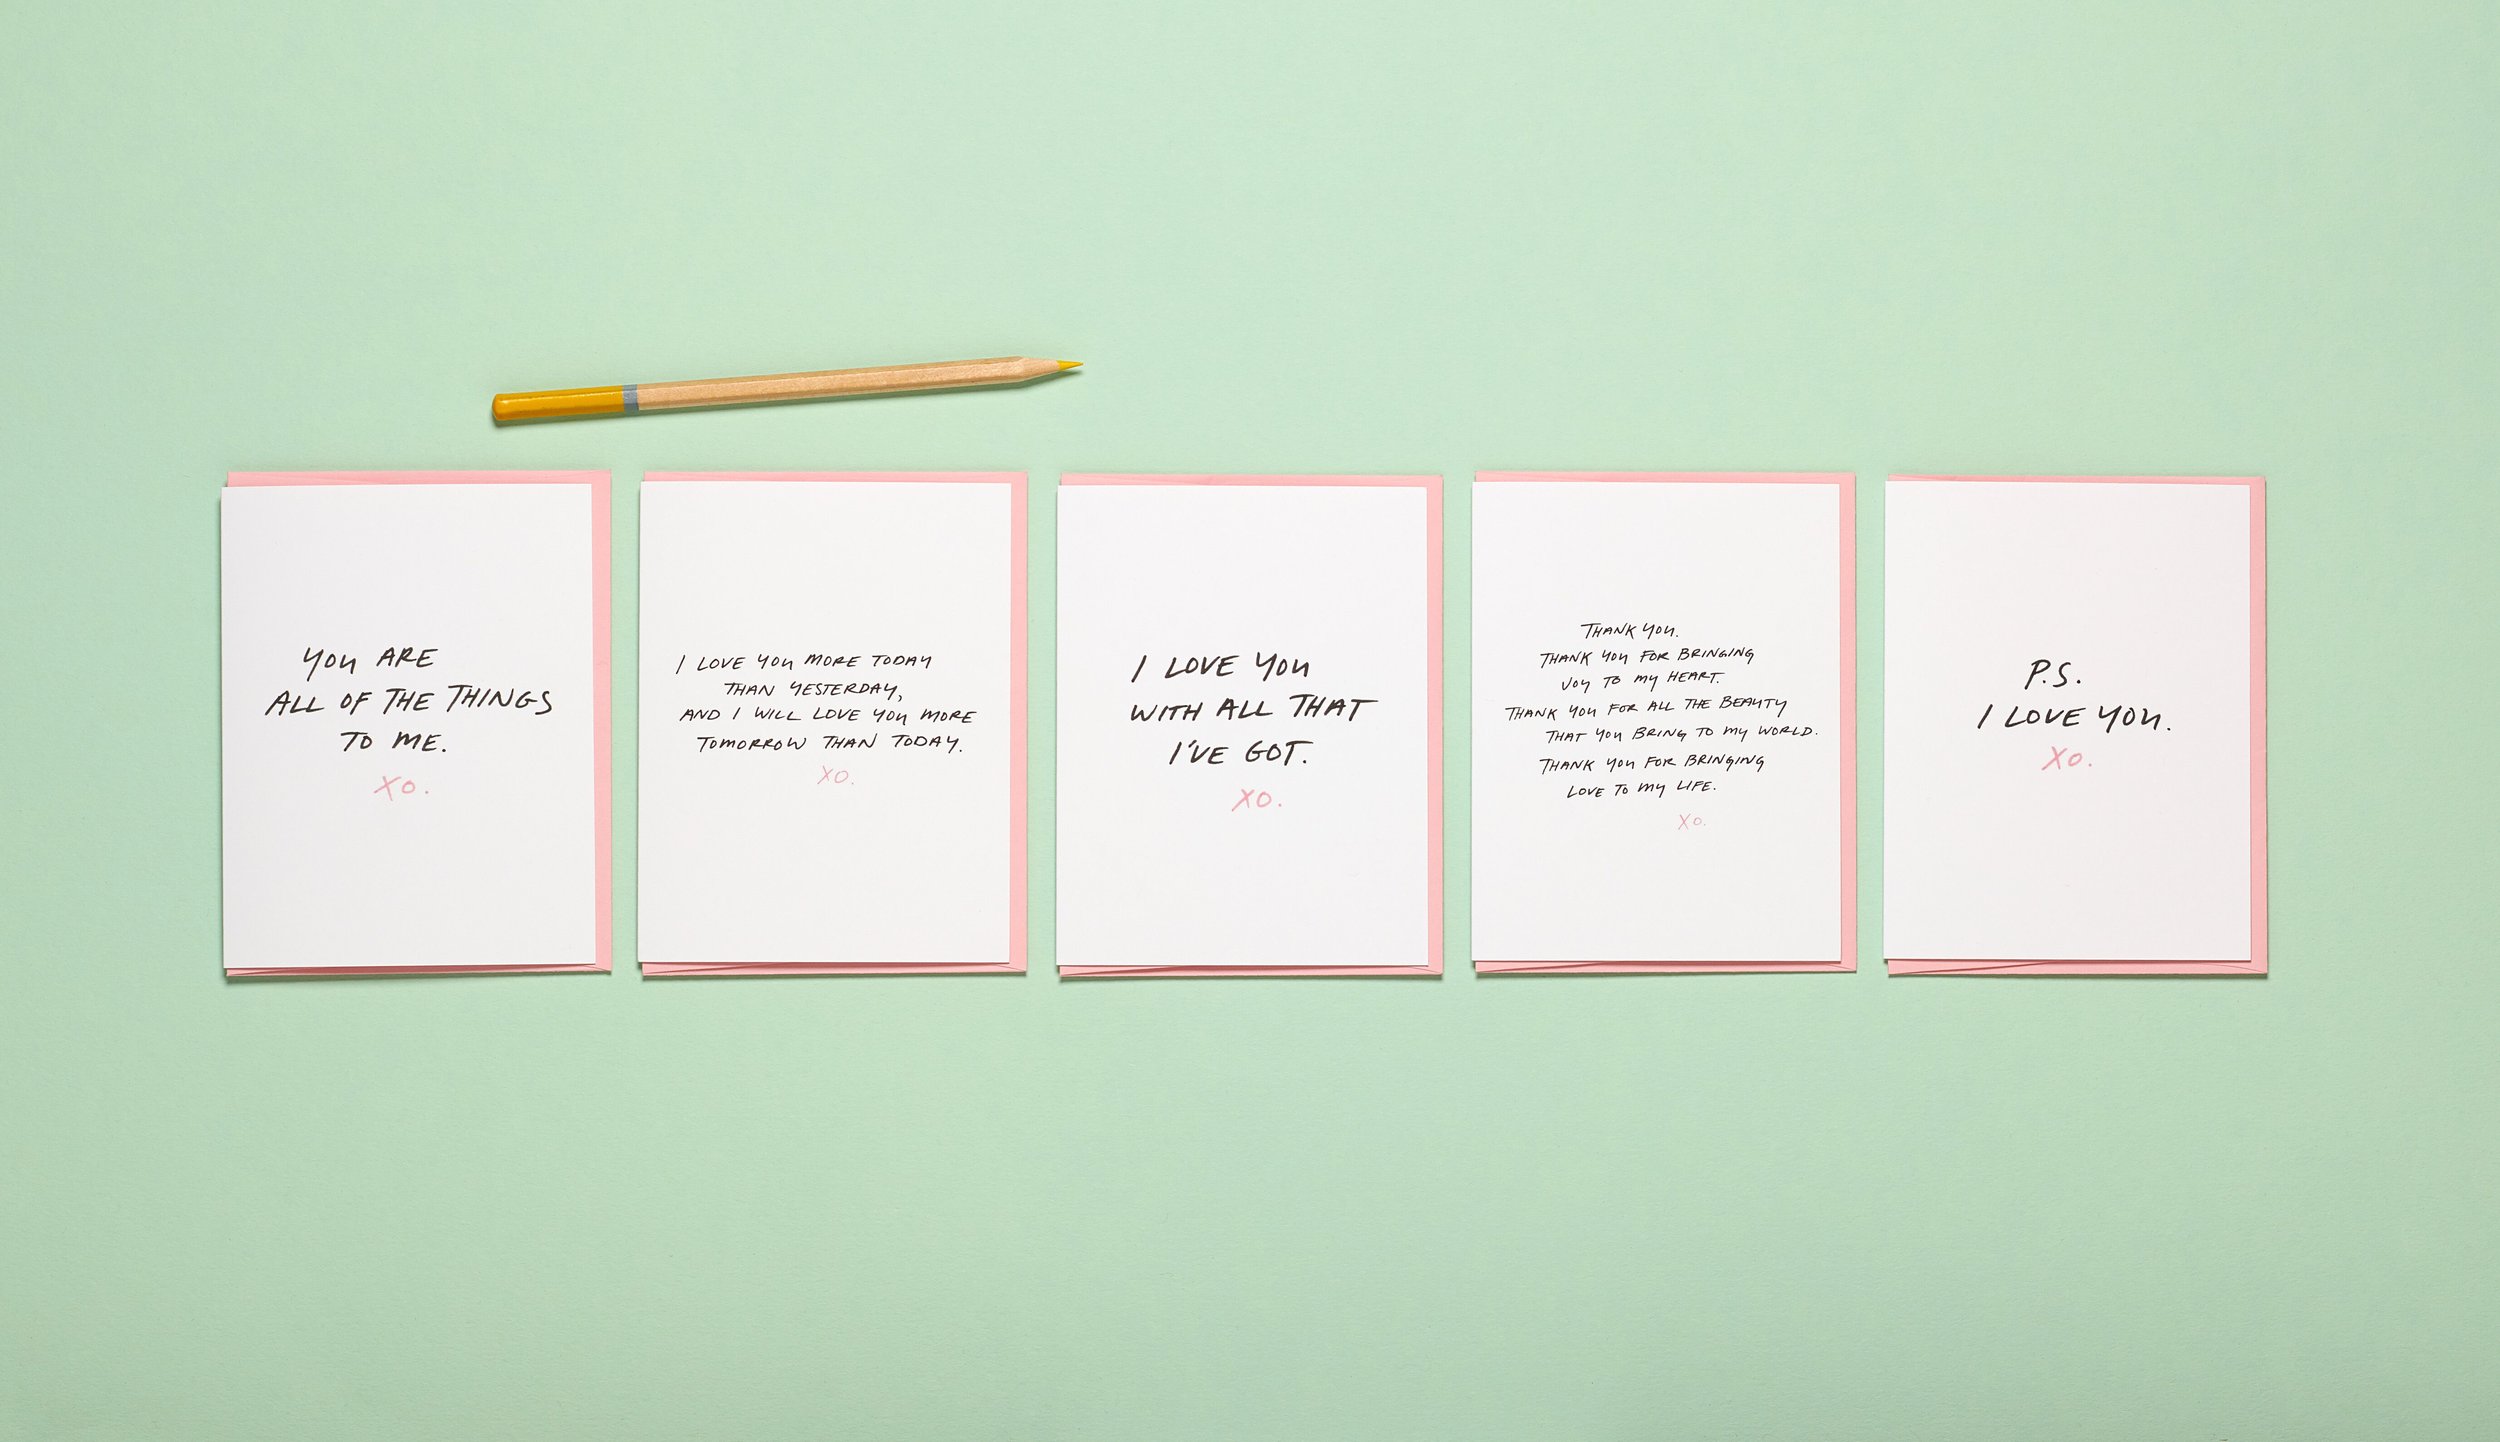 YOU ARE
ALL OF THE THINGS
TO ME.
XO.
I LOVE YOU MORE TODAY
THAN YESTERDAY,
AND I WILL LOVE YOU MORE
TOMORROW THAN TODAY.
XO.
I LOVE YOU
WITH ALL THAT
I'VE GOT.
XO.
THANK YOU.
THANK YOU FOR BRINGING
JOY TO MY HEART.
THANK YOU FOR ALL THE BEAUTY
THAT YOU BRING TO MY WORLD.
THANK YOU FOR BRINGING
LOVE TO MY LIFE.
XO.
P.S.
I LOVE YOU.
XO.